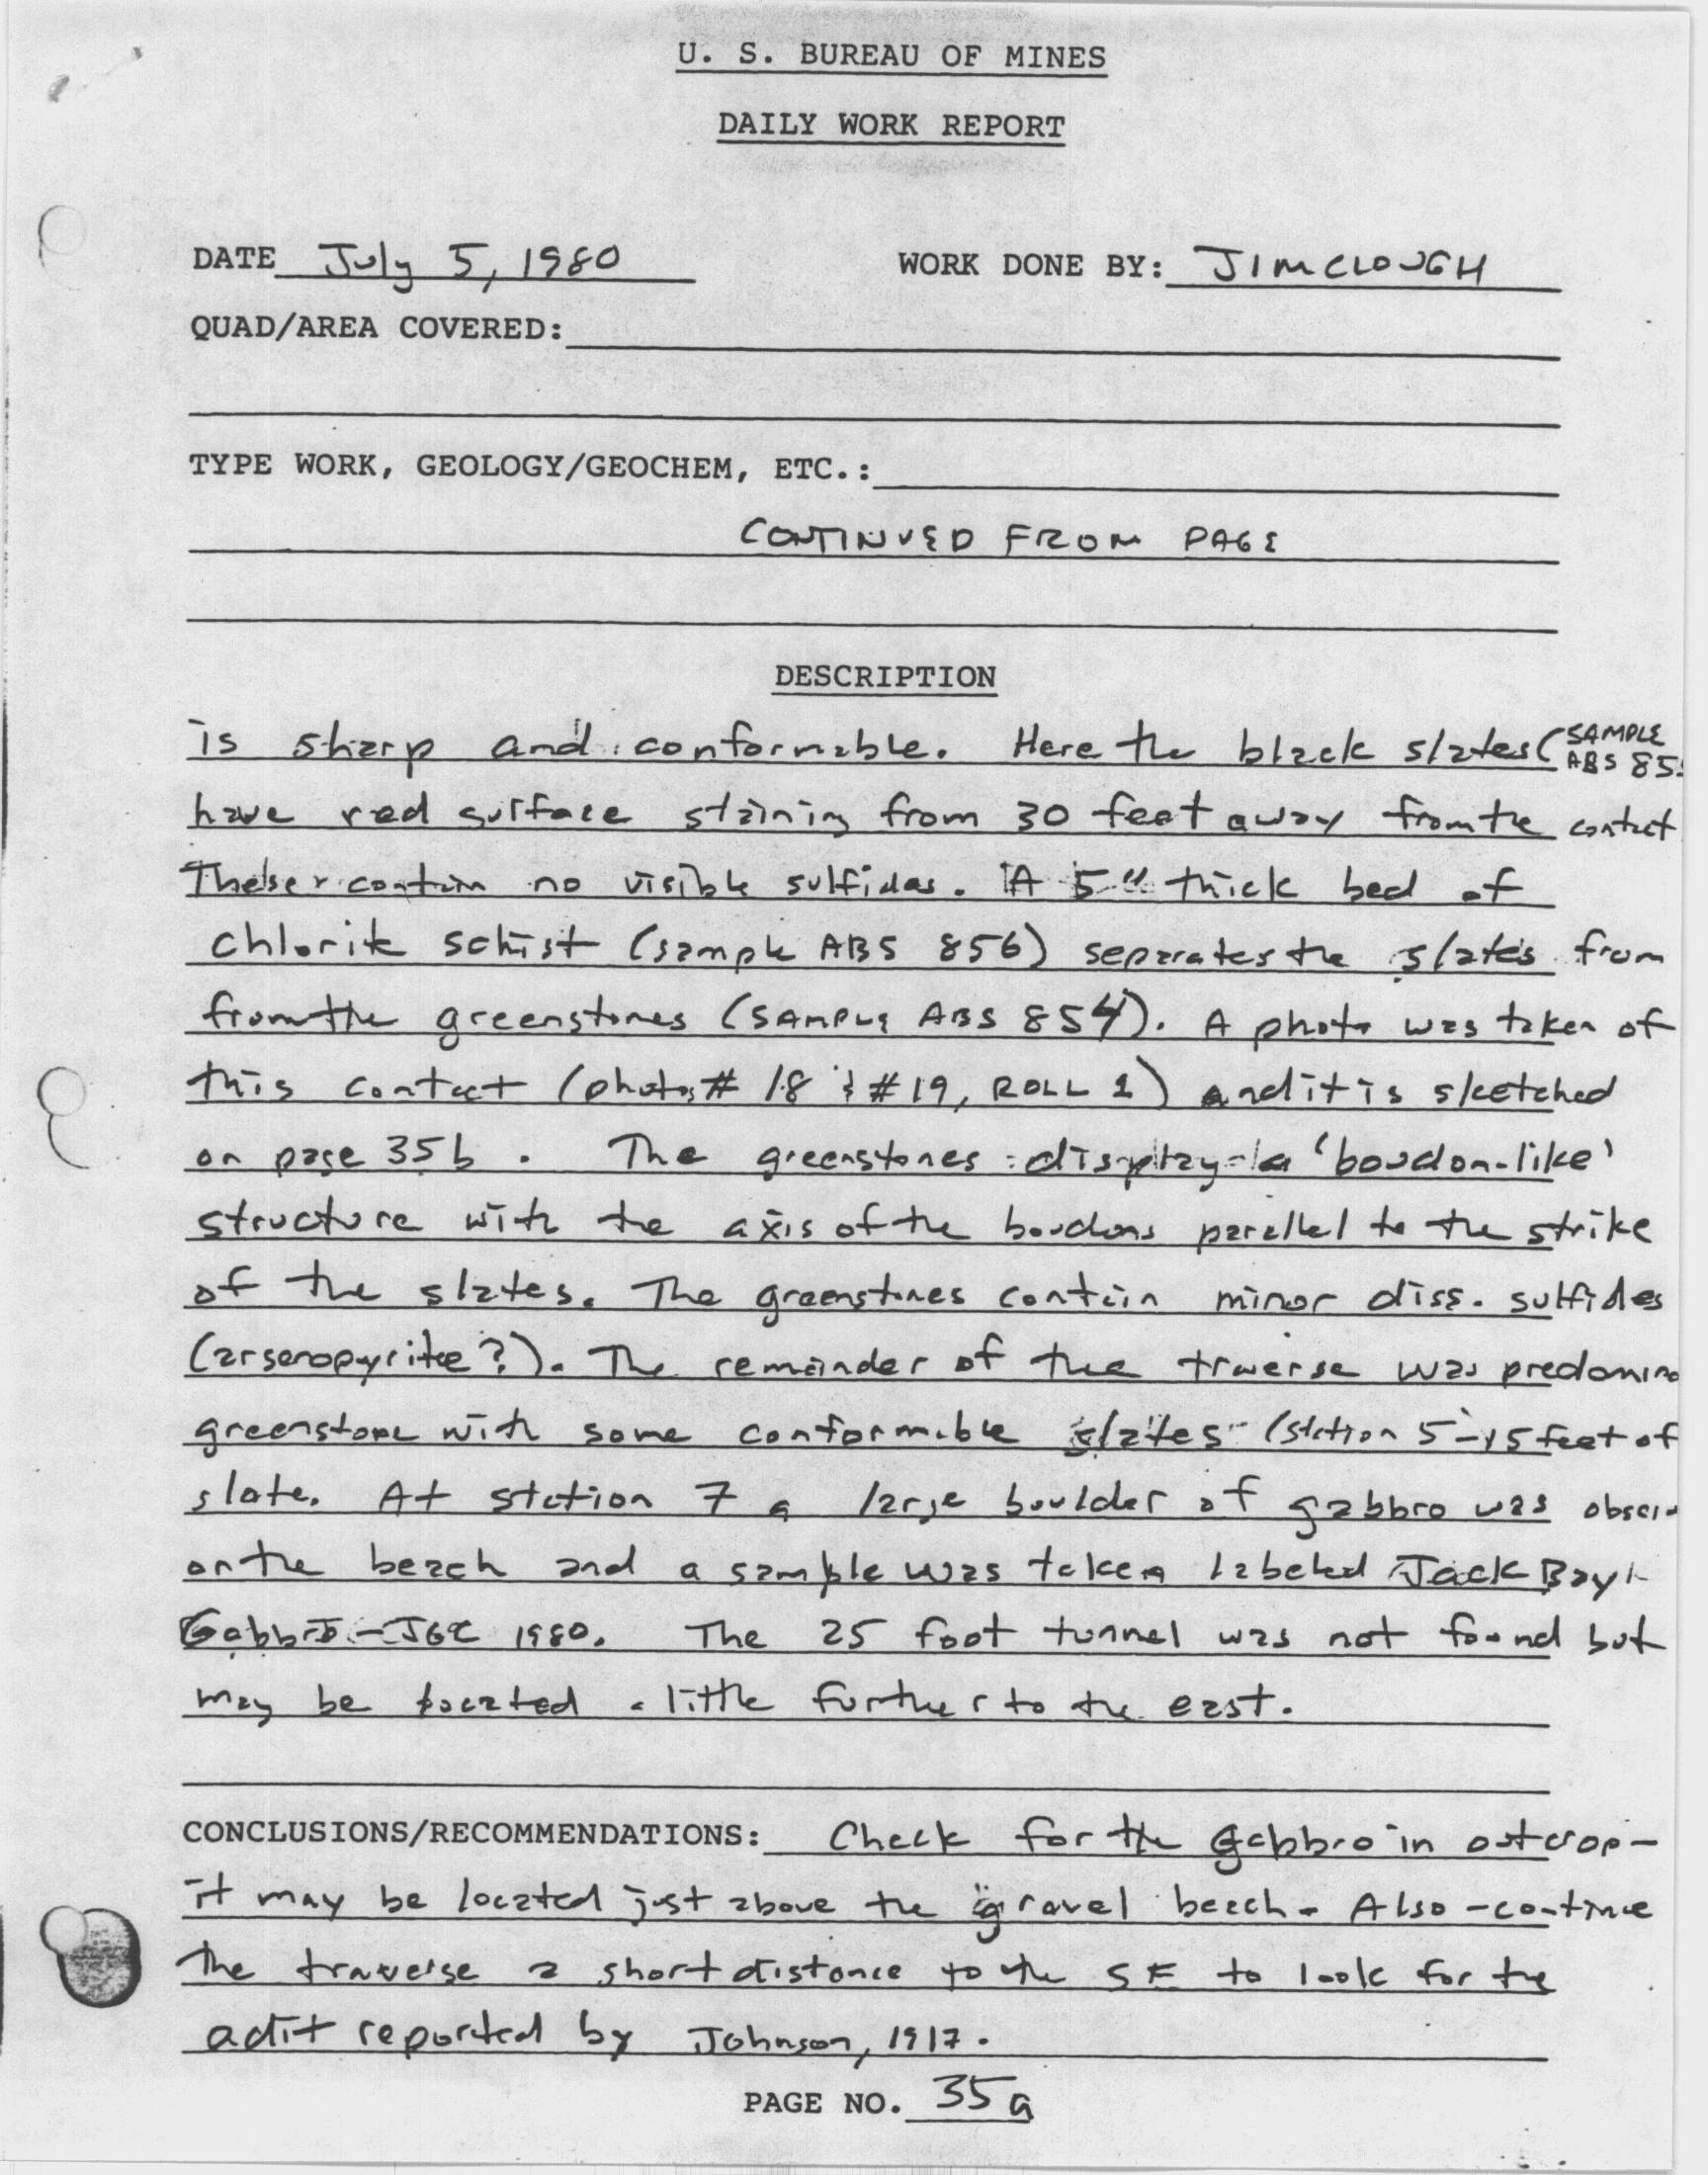 U. S. BUREAU OF MINES
DAILY WORK REPORT
DATE July 5, 1980 WORK DONE BY: JIM CLOUGH
QUAD/AREA COVERED:
TYPE WORK, GEOLOGY/GEOCHEM, ETC.:
CONTINUED FROM PAGE
DESCRIPTION
is sharp and conformable. Here the black slates (SAMPLE
ABS 85
have red surface staining from 30 feet away from the contact
These contain no visible sulfides. A 5" thick bed of
chlorite schist (sample ABS 856) separates the slates from
from the greenstones (SAMPLE ABS 854). A photo was taken of
this contact (photos # 18 & #19, ROLL 1) and it is sketched
on page 35b. The greenstones display a 'boudon-like'
structure with the axis of the boudons parallel to the strike
of the slates. The greenstones contain minor diss. sulfides
(arsenopyrite?). The remainder of the traverse was predomina
greenstone with some conformable slates (station 5 - 15 feet of
slate. At station 7 a large boulder of gabbro was observ
on the beach and a sample was taken labeled Jack Bay
Gabbro - JGC 1980. The 25 foot tunnel was not found but
may be located a little further to the east.
CONCLUSIONS/RECOMMENDATIONS: Check for the gabbro in outcrop -
it may be located just above the gravel beach. Also - continue
the traverse a short distance to the SE to look for the
adit reported by Johnson, 1917.
PAGE NO. 35a